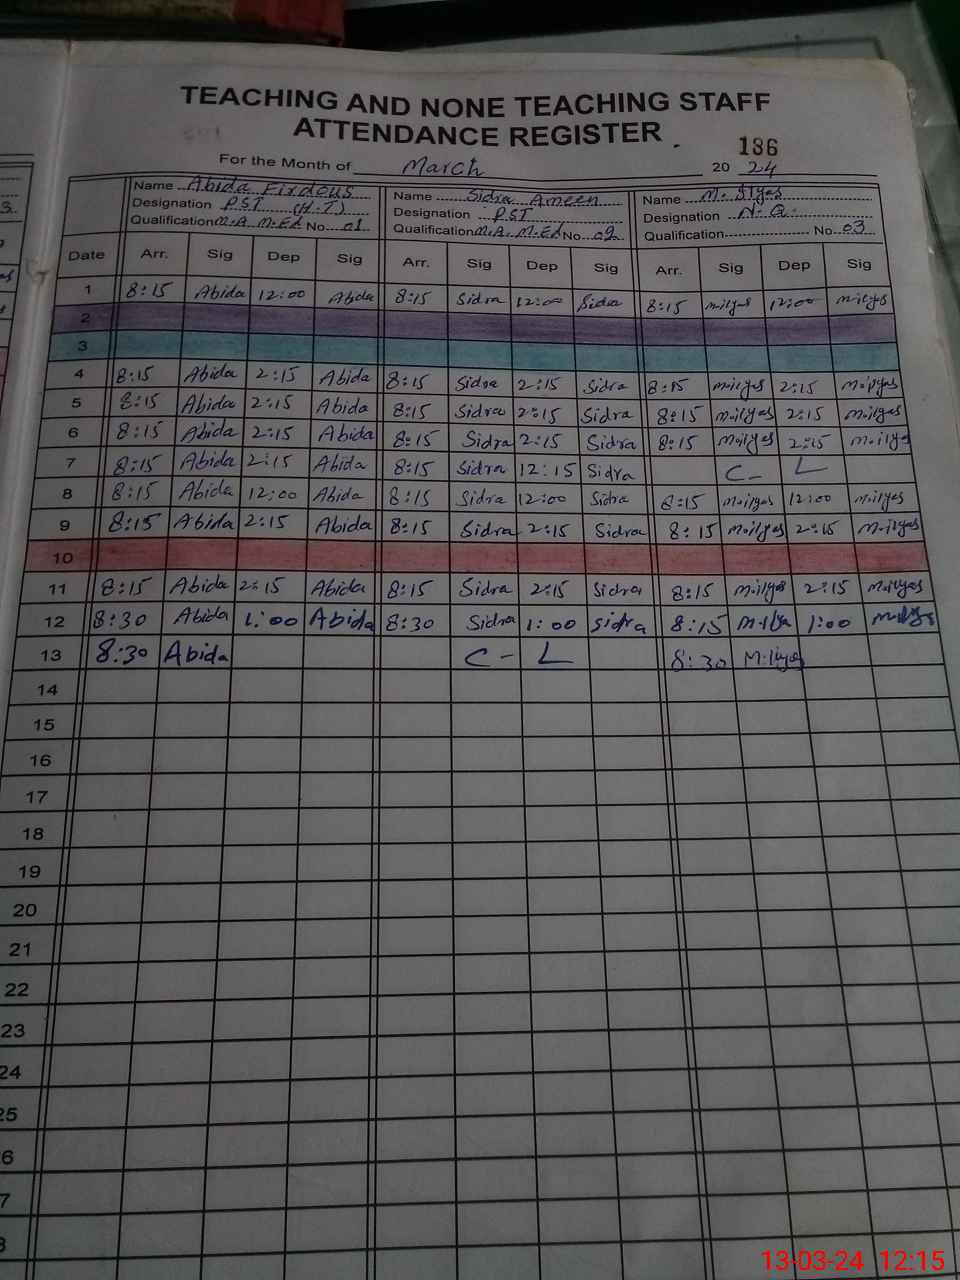 TEACHING AND NONE TEACHING STAFF
ATTENDANCE REGISTER
186
For the Month of March 2024
Name Abida Firdous Name Sidra Ameen Name M. Ilyas
Designation PST (H.T) Designation PST Designation N.Q.
Qualification M.A. M.Ed No. 01 Qualification M.A. M.Ed No. 02 Qualification No. 03
Date Arr. Sig Dep Sig Arr. Sig Dep Sig Arr. Sig Dep Sig
1 8:15 Abida 12:00 Abda 8:15 Sidra 12:00 Sidra 8:15 milyas 12:00 milyas
2
3
4 8:15 Abida 2:15 Abida 8:15 Sidra 2:15 Sidra 8:15 milyas 2:15 M.ilyas
5 8:15 Abida 2:15 Abida 8:15 Sidra 2:15 Sidra 8:15 M.ilyas 2:15 M.ilyas
6 8:15 Abida 2:15 Abida 8:15 Sidra 2:15 Sidra 8:15 M.ilyas 2:15 M.ilyas
7 8:15 Abida 2:15 Abida 8:15 Sidra 12:15 Sidra C- L
8 8:15 Abida 12:00 Abida 8:15 Sidra 12:00 Sidra 8:15 M.ilyas 12:00 M.ilyas
9 8:15 Abida 2:15 Abida 8:15 Sidra 2:15 Sidra 8:15 M.ilyas 2:15 M.ilyas
10
11 8:15 Abida 2:15 Abida 8:15 Sidra 2:15 Sidra 8:15 M.ilyas 2:15 M.ilyas
12 8:30 Abida 1:00 Abida 8:30 Sidra 1:00 Sidra 8:15 M.ilya 1:00 milys
13 8:30 Abida C- L 8:30 M.ilyas
14
15
16
17
18
19
20
21
22
23
24
25
6
7
8
13-03-24 12:15